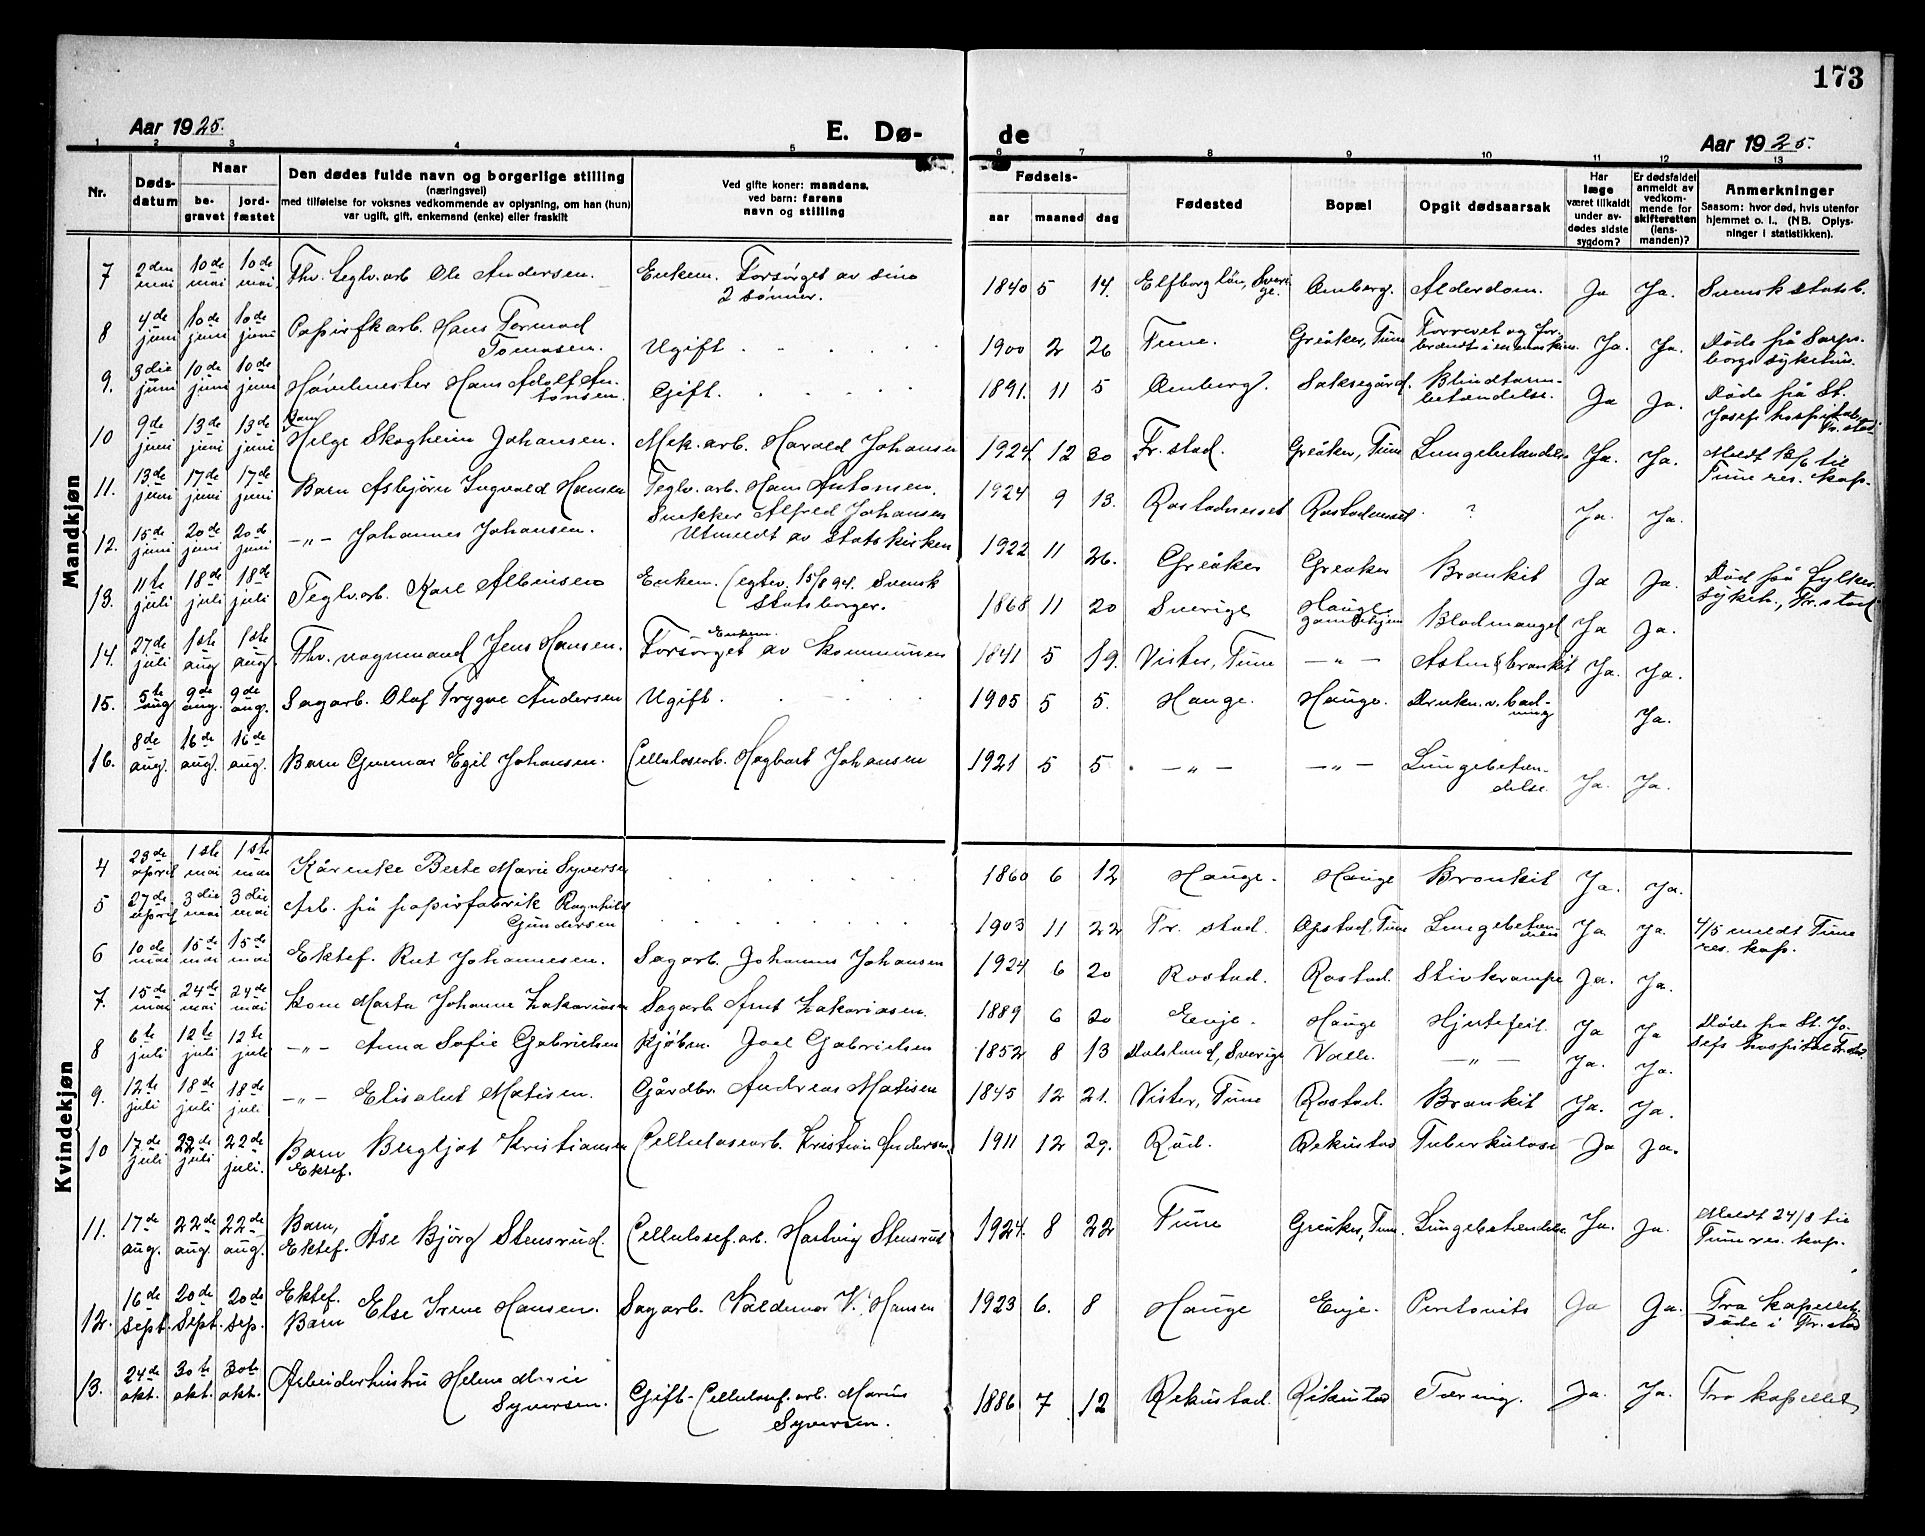 173
Aar 1925.
E. Dø-
de
Aar 1925.
1 2 3 4 5 6 7 8 9 10 11 12 13
Nr.
Døds-
datum
Naar
be-
gravet
jord-
fæstet
Den dødes fulde navn og borgerlige stilling
(næringsvei)
med tilføielse for voksnes vedkommende av oplysning, om han (hun)
var ugift, gift, enkemand (enke) eller fraskilt
Ved gifte koner: mandens,
ved barn: farens
navn og stilling
Fødsels-
aar maaned dag
Fødested
Bopæl
Opgit dødsaarsak
Har
læge
været tilkaldt
under av-
dødes sidste
sygdom?
Er dødsfaldet
anmeldt av
vedkom-
mende for
skifteretten
(lens-
manden)?
Anmerkninger
Saasom: hvor død, hvis utenfor
hjemmet o. l., (NB. Oplys-
ninger i statistikken).
Mandkjøn
7 2den mai 10de mai 10de mai Fhv. Teglv.arb Ole Andersen. Enkem. Forsørget av sine
2 sønner. 1840 5 14. Elfborg län, Sveri-
ge. Amberg. Alderdom. Ja Ja. Svensk statsb.
8 4de juni 10de juni 10de juni Papirfk arb. Hans Tormod
Tomasen. Ugift 1900 2 26 Tune. Greåker, Tune Forrevet og for-
brændt i en maskin. Ja. Ja. Døde på Sarps-
borgs sykehus.
9. 3die juni 10de juni 10de juni Hövelmester Hans Adolf An-
tonsen. Gift. 1891. 11 5 Amberg. Saksegård. Blindtarm-
betændelse. Ja Ja. Døde på St.
Josefs hospital,
Fr.stad
10 9de juni 13de juni 13de juni Barn
Helge Skogheim Johansen. Mek. arb. Harald Johansen 1924. 12 30 Fr. stad. Greåker, Tune Lungebetændelse Ja. Ja. Meldt 12/6 til
Tune res. kap.
11. 13de juni 17de juni 17de juni Barn Asbjørn Ingvald Hansen Teglv. arb. Hans Antonsen. 1924 9 13. Rostadneset Rostadneset ? Ja. Ja.
12. 15de juni 20de juni 20de juni -„- Johannes Johansen. Snekker Alfred Johansen
Utmeldt av statskirken 1922 11 26. Greåker Greaker Bronkit Ja Ja.
13. 11te juli 18de juli 18de juli Teglv.arb. Karl Albinsen Enkem. (egtev. 15/8 94. Svensk
Statsborger. 1868 11 20 Sverige Hauge
gamlehjem Blodmangel Ja Ja. Død på fylkes-
sykeh., Fr.stad
14. 27de juli 1ste aug 1ste aug. Fhv. vognmand Jens Hansen. Enkem.
Forsørget av kommunen 1841 5 19. Vister, Tune -„- Astm & bronkit Ja. Ja.
15. 5te aug 9de aug. 9de aug. Sagarb. Olaf Trygve Andersen Ugift. 1905 5 5. Hauge. Hauge. Drukn. v. bad-
ning Ja.
16. 8de aug. 16de aug. 16de aug. Barn Gunnar Egil Johansen. Cellulosearb. Hagbart Johansen 1921 5 5. -„- -„- Lungebetæn-
delse. Ja. Ja.
Kvindekjøn
4 23de april 1ste mai 1ste mai Kårenke Berte Marie Syversen 1860 6 12 Hauge. Hauge Bronkit Ja. Ja.
5 27de april 3die mai 3die mai Arb. på papirfabrik Ragnhild
Gundersen 1903 11 22 Fr. stad. Opstad, Tune Lungebetæn-
delse Ja Ja. 4/5 meldt Tune
res. kap.
6 10de mai 15de mai 15de mai Ektef. Rut Johannesen. Sagarb. Johannes Johansen 1924 6 20 Rostad. Rostad. Stivkrampe Ja. Ja.
7. 15de mai 24de mai 24de mai Kone Marta Johanne Zakariasen Sagarb Arnt Zakariasen. 1889 6 20 Enje. Hauge Hjertefeil. Ja Ja Døde på St. Jo-
sefs hospital Fr.stad
8 6te juli 12te juli 12te juli -„- Anna Sofie Gabrielsen Kjøbm. Joel Gabrielsen 1852 8 13 Dalsland, Sverige Valle. -„- Ja. Ja.
9. 12te juli 18de juli 18de juli -„- Elisabet Matisen. Gårdbr. Andreas Matisen 1845 12 21. Vister, Tune Rostad. Bronkit Ja. Ja.
10 17de juli 22de juli 22de juli. Barn
Ektef. Bergljot Kristiansen Cellulosearb. Kristian Andersen. 1911 12 29. Råd. Rekustad Tuberkulose Ja Ja.
11. 17de aug. 22de aug. 22de aug. Barn,
Ektef. Åse Bjørg Stensrud. Cellulosef.arb. Hartvig Stensrud 1924. 8 22 Tune Greåker, Tune. Lungebetændelse Ja. Ja. Meldt 24/8 til
Tune res. kap.
12. 16de sept. 20de Sept. 20de sep. Ektef.
Barn Else Irene Hansen. Sagarb. Valdemar V. Hansen 1923 6. 8 Hauge Enje. Peretonits Ja Ja. Fra kapellet.
Døde i Fr.stad
13. 24de okt. 30te okt. 30te okt. Arbeiderhustru Helene Marie
Syversen. Gift - Cellulosef.arb. Marius
Syversen. 1886 7 12 Rekustad. Rekustad Tæring. Ja. Ja. Fra kapellet